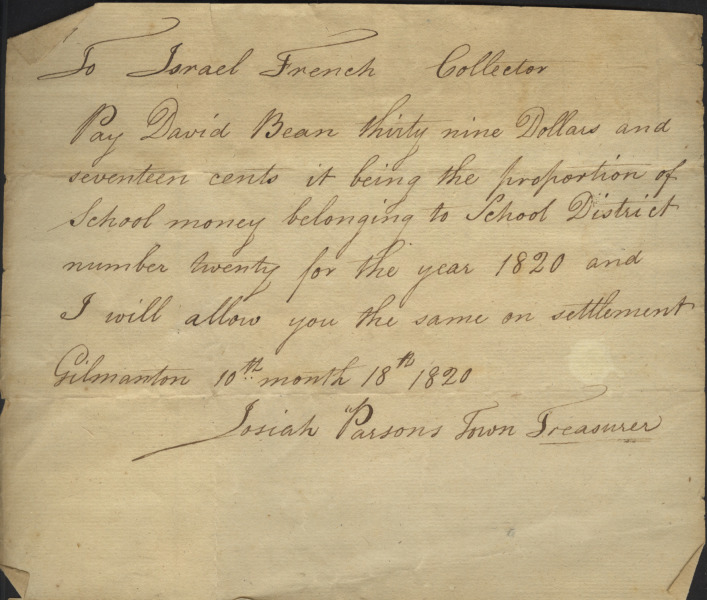 To Israel French Collector
Pay David Bean thirty nine Dollars and
seventeen cents it being the proportion of
School money belonging to School District
number twenty for the year 1820 and
I will allow you the same on settlement
Gilmanton 10th month 18th 1820
Josiah Parsons Town Treasurer